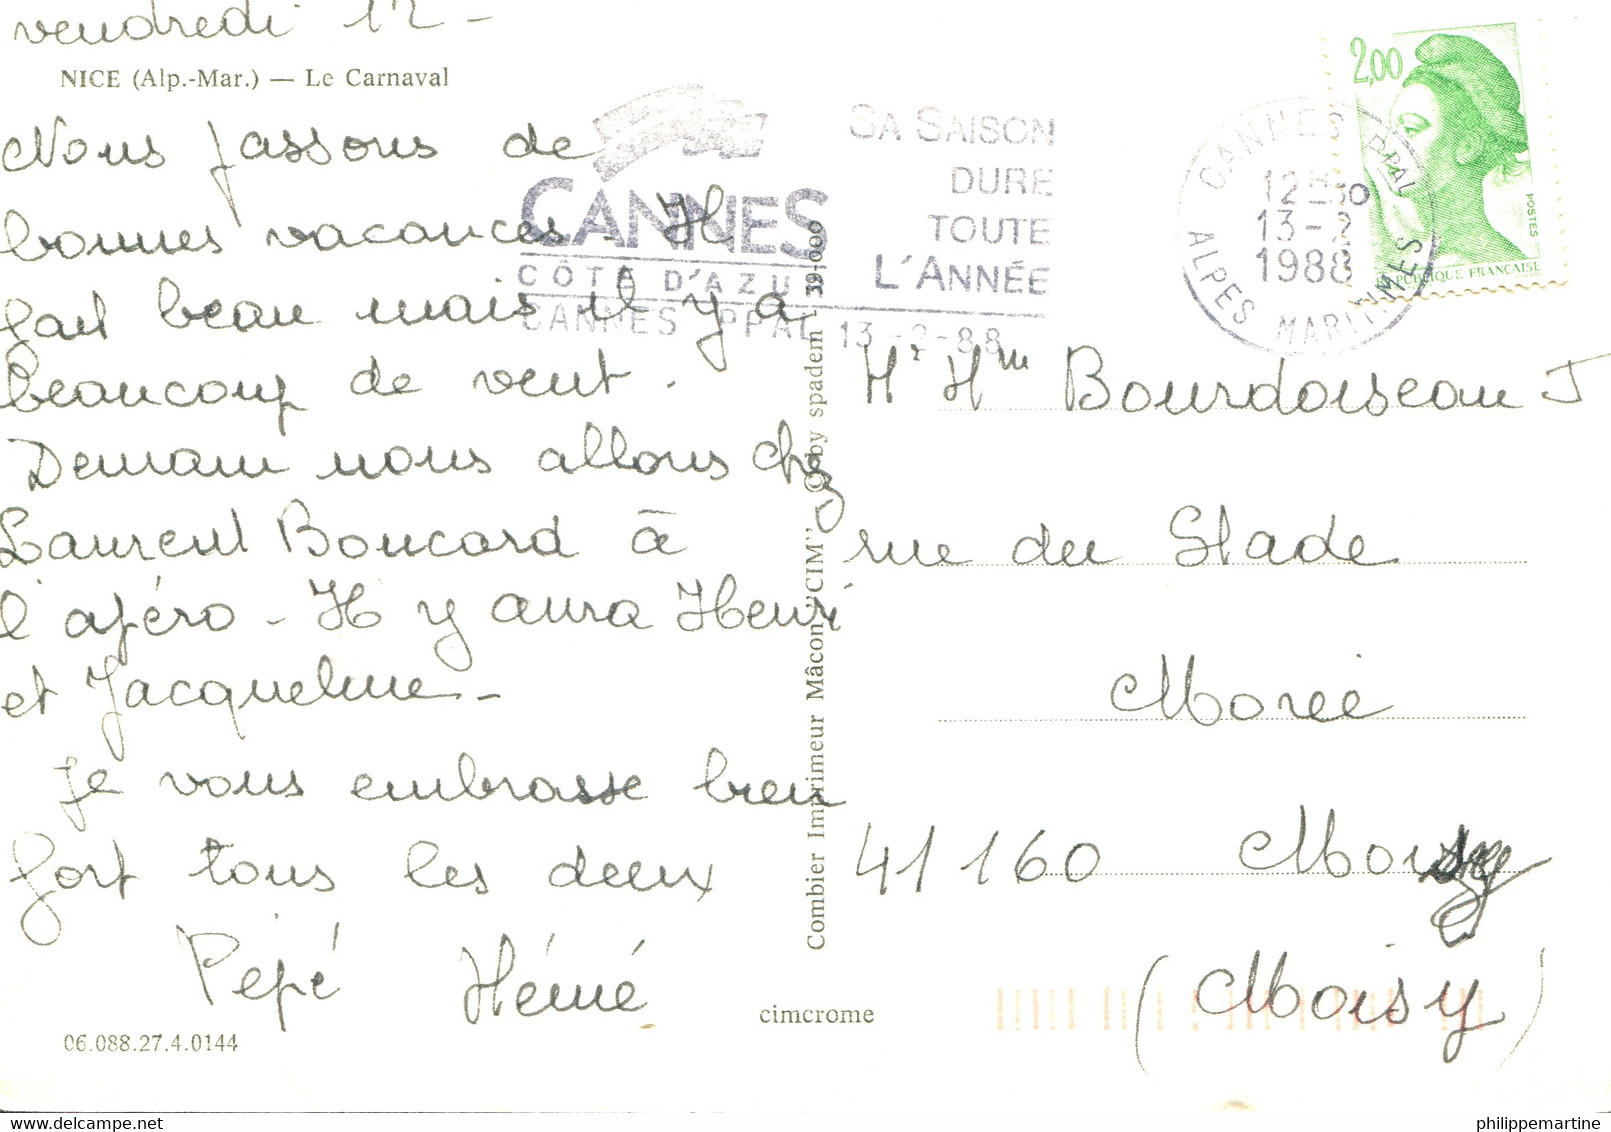 vendredi 12 -
NICE (Alp.-Mar.) — Le Carnaval
Nous passons de
bonnes vacances. Il
fait beau mais il y a
beaucoup de vent.
Demain nous allons chez
Laurent Boucard à
l'apéro - Il y aura Henri
et Jacqueline -
Je vous embrasse bien
fort tous les deux
Pépé Mémé
06.088.27.4.0144
cimcrome
Combier Imprimeur Mâcon "CIM" © by spadem - 39-000
CANNES
CÔTE D'AZUR
CANNES PPAL 13-2-88
SA SAISON
DURE
TOUTE
L'ANNÉE
CANNES PPAL
12H30
13-2
1988
ALPES MARITIMES
2,00
POSTES
REPUBLIQUE FRANÇAISE
Mr Mme Bourdoiseau J
rue du Stade
Morée
41160 Moisy
(Moisy)
philippemartine